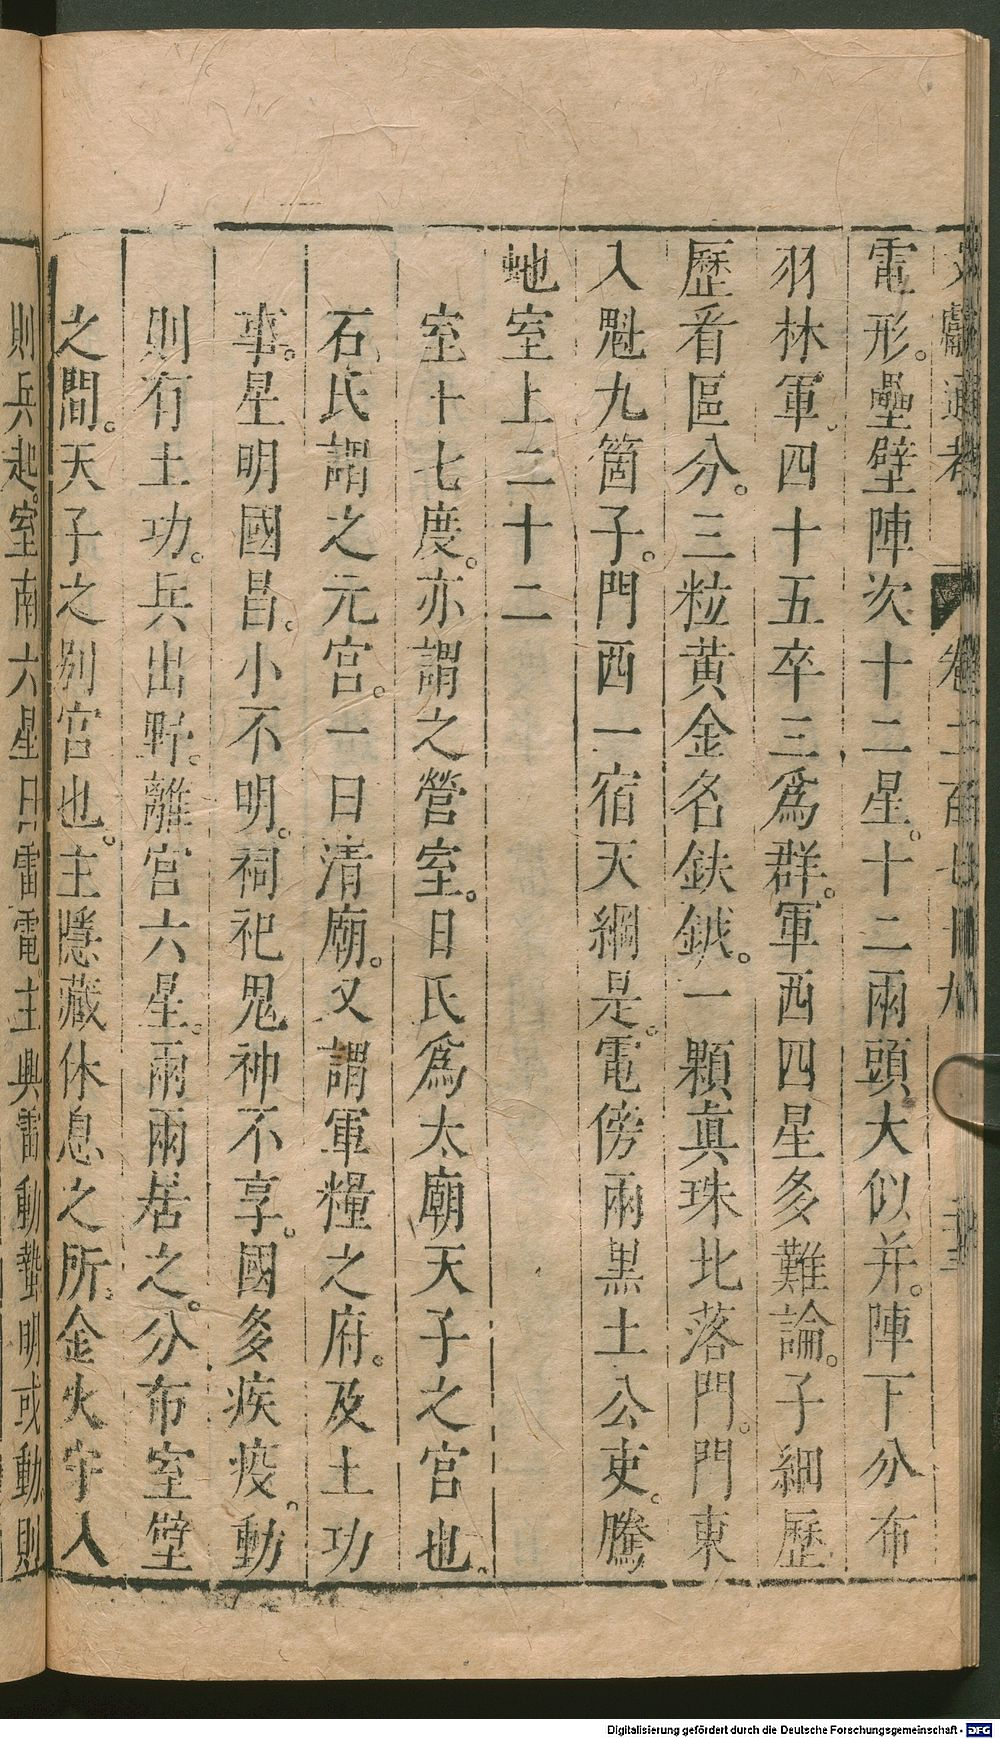 文獻通考 卷二百七十九
電形。壘壁陣次十二星。十二兩頭大似井。陣下分布
羽林軍。四十五卒三爲群。軍西四星多難論。子細歷
歷看區分。三粒黃金名鈇鉞。一顆眞珠北落門。門東
八魁九箇子。門西一宿天綱是。電傍兩黑土公吏。騰
虵室上二十二
室十七度。亦謂之營室。日氏爲太廟天子之宮也。
石氏謂之元宮。一曰清廟。又謂軍糧之府。及土功
事。星明國昌。小不明。祠祀鬼神不享。國多疾疫。動
則有土功。兵出野。離宮六星。兩兩居之。分布室壁
之間。天子之別宮也。主隱藏休息之所。金火守入
則兵起。室南六星曰雷電。主興雷動蟄。明或動則
Digitalisierung gefördert durch die Deutsche Forschungsgemeinschaft - DFG